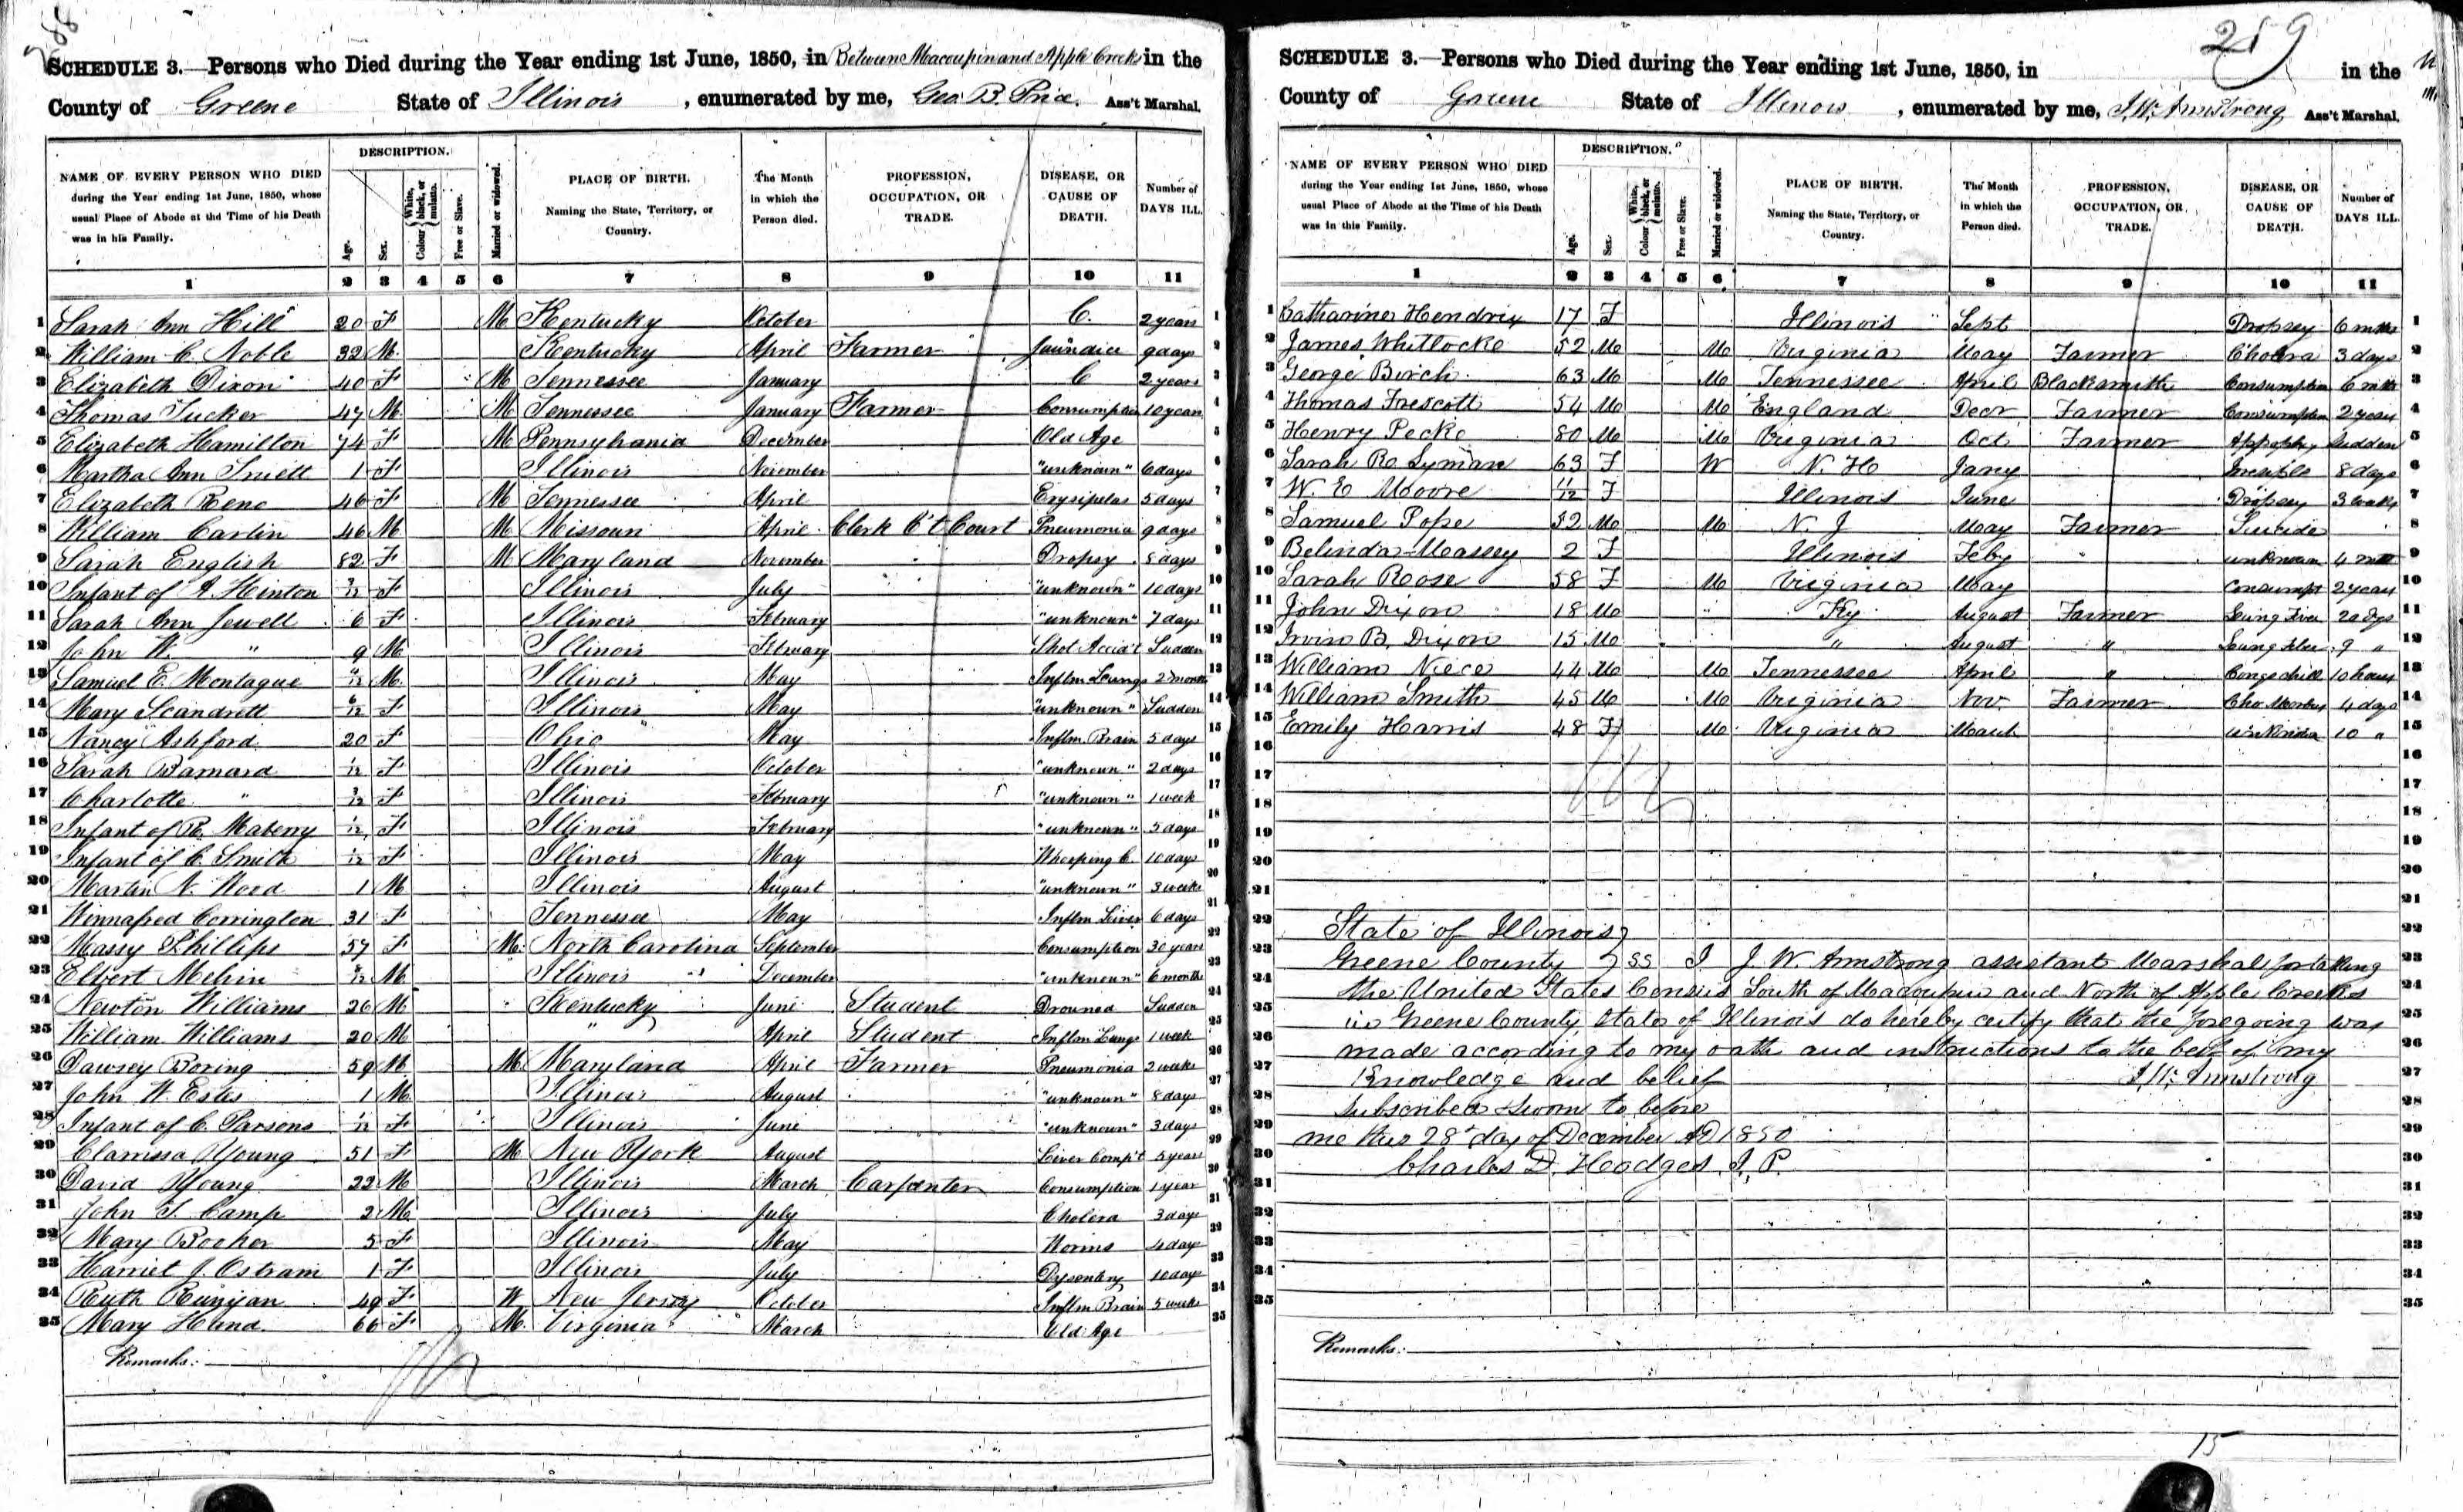 288
SCHEDULE 3.—Persons who Died during the Year ending 1st June, 1850, in Between Macoupin and Apple Creeks in the
County of Greene State of Illinois, enumerated by me, Geo. B. Price. Ass't Marshal.
NAME OF EVERY PERSON WHO DIED during the Year ending 1st June, 1850, whose usual Place of Abode at the Time of his Death was in his Family.
DESCRIPTION.
Age. Sex. Colour White, black, or mulatto. Free or Slave. Married or widowed.
PLACE OF BIRTH. Naming the State, Territory, or Country.
The Month in which the Person died.
PROFESSION, OCCUPATION, OR TRADE.
DISEASE, OR CAUSE OF DEATH.
Number of DAYS ILL.
1 2 3 4 5 6 7 8 9 10 11
1 Sarah Ann Hill 20 F M Kentucky October C. 2 years 1
2 William C. Noble 32 M. Kentucky April Farmer Jaundice 9 days 2
3 Elizabeth Dixon 40 F M Tennessee January C 2 years 3
4 Thomas Tucker 47 M. M Tennessee January Farmer Consumption 10 years 4
5 Elizabeth Hamilton 74 F M Pennsylvania December Old Age 5
6 Martha Ann 1 F Illinois November "unknown" 6 days 6
7 Elizabeth Reno 46 F M Tennessee April Erysipelas 5 days 7
8 William Carlin 46 M. M Missouri April Clerk C't Court Pneumonia 9 days 8
9 Sarah English 82 F M Maryland November Dropsy 8 days 9
10 Infant of A. Hinton 3/12 F Illinois July "unknown" 10 days 10
11 Sarah Ann Jewell 6 F Illinois February "unknown" 7 days 11
12 John W. " 9 M Illinois February Shot Accid't Sudden 12
13 Samuel E. Montague /12 M. Illinois May Inflm Lungs 2 months 13
14 Mary Scandrett 6/12 F Illinois May "unknown" Sudden 14
15 Nancy Ashford 20 F Ohio May Inflm. Brain 5 days 15
16 Sarah Barnard 1/12 F Illinois October "unknown" 2 days 16
17 Charlotte " 3/12 F Illinois February "unknown" 1 week 17
18 Infant of R. Maberry 1/12 F Illinois February "unknown" 5 days 18
19 Infant of C. Smith 1/12 F Illinois May Whooping C. 10 days 19
20 Martin N. Wood 1 M Illinois August "unknown" 3 weeks 20
21 Winnafred Corrington 31 F Tennessee May Inflm Liver 6 days 21
22 Massy Phillips 57 F M. North Carolina September Consumption 30 years 22
23 Elbert Melvin /12 M. Illinois December "unknown" 6 months 23
24 Newton Williams 26 M Kentucky June Student Drouned Sudden 24
25 William Williams 20 M " April Student Inflm Lungs 1 week 25
26 Dawsey Boring 59 M M. Maryland April Farmer Pneumonia 2 weeks 26
27 John W. Estes 1 M. Illinois August "unknown" 8 days 27
28 Infant of C. Parsons 1/12 F Illinois June "unknown" 3 days 28
29 Clarrissa Young 51 F M New York August Liver Comp't 5 years 29
30 David Young 22 M Illinois March Carpenter Consumption 1 year 30
31 John T. Camp 2 M. Illinois July Cholera 3 days 31
32 Mary Booker 5 F Illinois May Worms 4 days 32
33 Harriet J. Ostram 1 F Illinois July Dysentery 10 days 33
34 Ruth Runyan 49 F W New Jersey October Inflm Brain 5 weeks 34
35 Mary Hand 66 F M. Virginia March Old Age 35
Remarks:
259
SCHEDULE 3.—Persons who Died during the Year ending 1st June, 1850, in in the
County of Greene State of Illinois, enumerated by me, J. W. Armstrong Ass't Marshal.
NAME OF EVERY PERSON WHO DIED during the Year ending 1st June, 1850, whose usual Place of Abode at the Time of his Death was in this Family.
DESCRIPTION.
Age. Sex. Colour White, black, or mulatto. Free or Slave. Married or widowed.
PLACE OF BIRTH. Naming the State, Territory, or Country.
The Month in which the Person died.
PROFESSION, OCCUPATION, OR TRADE.
DISEASE, OR CAUSE OF DEATH.
Number of DAYS ILL.
1 2 3 4 5 6 7 8 9 10 11
1 Catharine Hendrix 17 F Illinois Sept Dropsey 6 mths 1
2 James Whitlocke 52 M M Virginia May Farmer Cholera 3 days 2
3 George Birch 63 M M Tennessee April Blacksmith Consumption 6 mth 3
4 Thomas Frescott 54 M M England Decr Farmer Consumption 2 years 4
5 Henry Pecke 80 M M Virginia Oct Farmer Appoplxy Sudden 5
6 Sarah R. Lyman 63 F W N. H Jany 8 days 6
7 W. E Moore 11/12 F Illinois June Dropsey 3 weeks 7
8 Samuel Pope 52 M M N. J May Farmer Suicide 8
9 Belinda Massey 2 F Illinois Feby unknown 4 mth 9
10 Sarah Roose 58 F M Virginia May Consumpt 2 years 10
11 John Dixon 18 M " Ky August Farmer Lung Fever 20 dys 11
12 Irvin B. Dixon 15 M " August " Lung Fever 9 " 12
13 William Niece 44 M M Tennessee April " Conge chill 10 hours 13
14 William Smith 45 M M Virginia Nov. Farmer Cho Morbus 4 days 14
15 Emily Harris 48 F M Virginia March 10 " 15
16
17
18
19
20
21
22 State of Illinois
23 Greene County ss I J. W. Armstrong assistant Marshal for taking
24 the United States Census South of Macoupin and North of Apple Creeks
25 in Greene County State of Illinois do hereby certify that the foregoing was
26 made according to my oath and instructions to the best of my
27 Knowledge and belief J. W. Armstrong
28 Subscribed & sworn to before
29 me this 28th day of December AD 1850
30 Charles D. Hodges J. P.
31
32
33
34
35
Remarks:
15